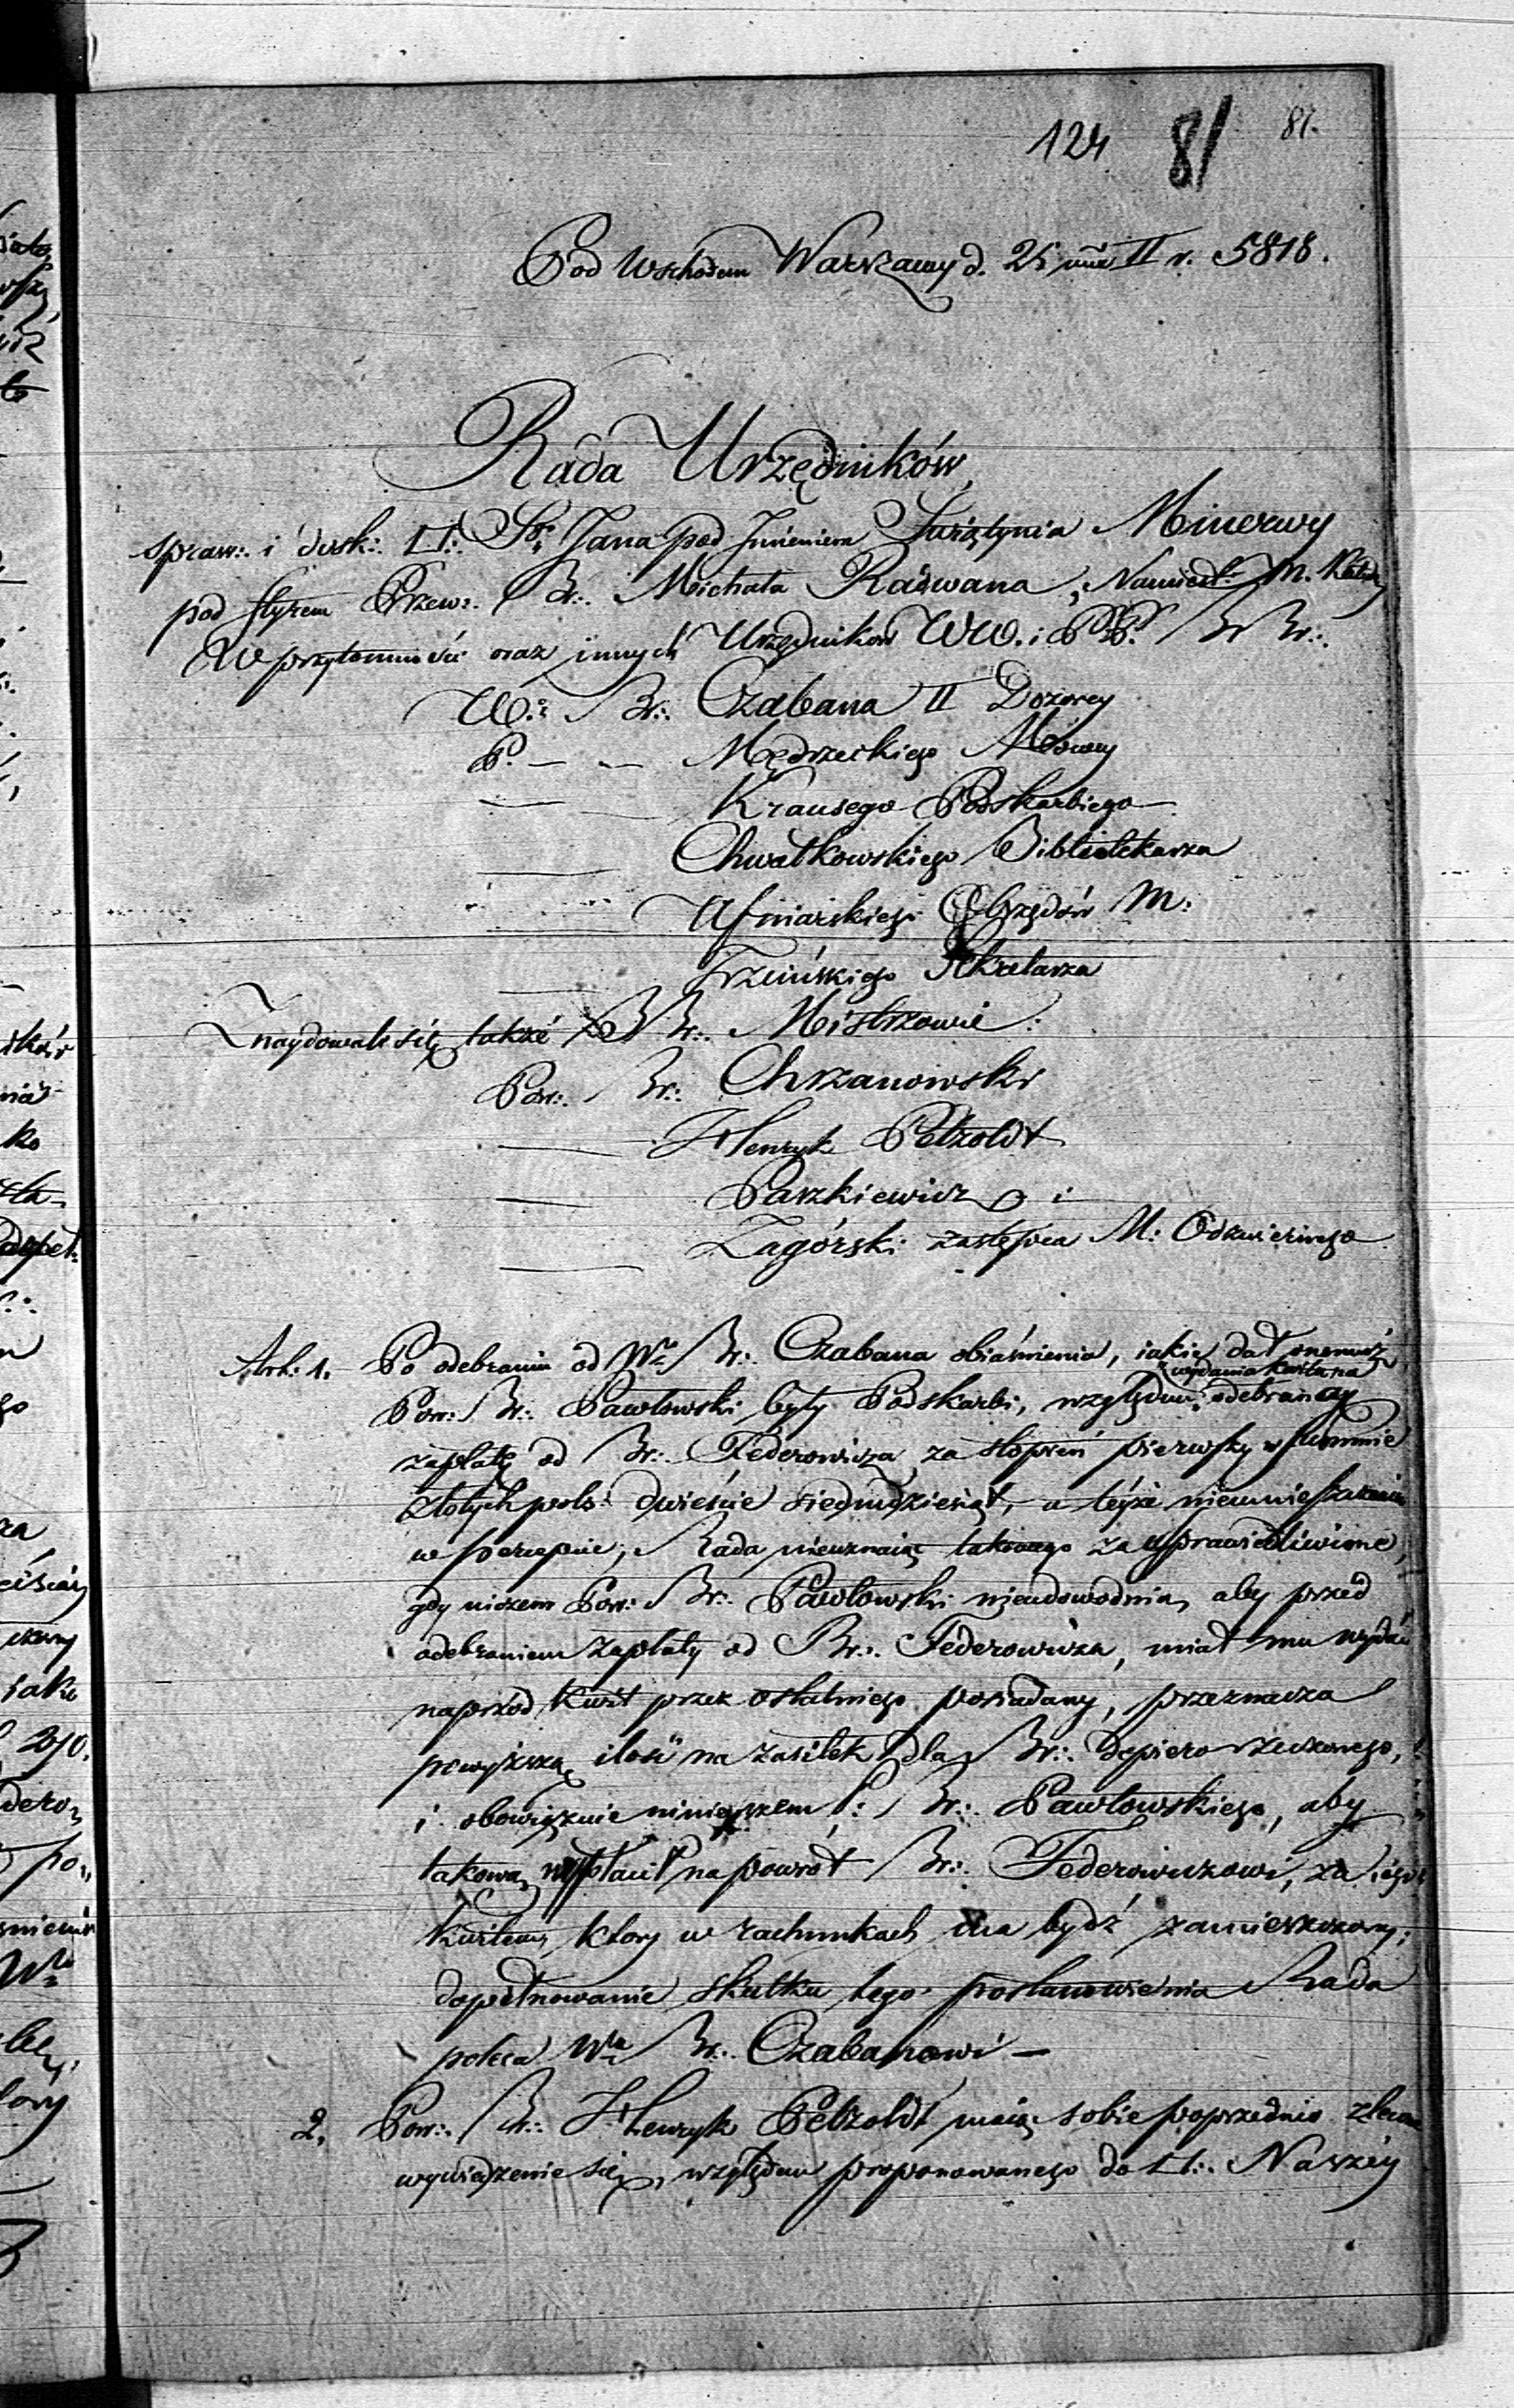 124 81 81.
Pod Wschodem Warszawy d. 25 mca II r. 5818.
Rada Urzędników
spraw:. i dosk:. □:. Sgo Jana pod Jmieniem Świątynia Minerwy
pod styrem Przew:. Br:. Michała Radwana, Namiest: M. Katedry
W przytomności oraz innych Urzędników WW. i PP. BrBr:.
W:. Br:. Czabana II Dozorcy
P. — — Mędrzeckiego Mówcy
Krausego Podskarbiego
Chwatkowskiego Bibliotekarza
Usniarskiego Obrzędów M:
Trzcińskiego Sekretarza
Znaydowali się także BrBr:. Mistrzowie:
Pow:. Br:. Chrzanowski
Henryk Petzoldt
Paszkiewicz i
Zagórski zastępca M: Odzwiernego
Art: 1. Po odebraniu od Wgo Br:. Czabana obiaśnienia, iakie dał onemuż
wydania kwitu na
Pow: Br:. Pawłowski były Podskarbi, względem odebraney
zapłatę od Br:. Federowicza za stopień pierwszy w summie
złotych pols: dwieście siedmdziesiąt, a teyże nieumieszczeniu
w percepcie; Rada nieuznaiąc takowego za usprawiedliwione,
gdy niczem Pow: Br:. Pawłowski nieudowodnia, aby przed
odebraniem zapłaty od Br:. Federowicza, miał mu wydać
naprzód kwit przez ostatniego posiadany, przeznacza
powyższą ilość na zasiłek dla Br:. dopiero rzeczonego,
i obowiązuie ninieyszem P: Br:. Pawłowskiego, aby
takową wypłacił na powrót Br:. Federowiczowi, za iego
kwitem, który w rachunkach ma bydź zamieszczony;
dopełnowanie skutku tego postanowienia Rada
poleca Wmu Br:. Czabanowi —
2. Pow:. Br:. Henryk Petzoldt maiąc sobie poprzednio zlecone
wywiedzenie się, względem proponowanego do □:. Naszéy